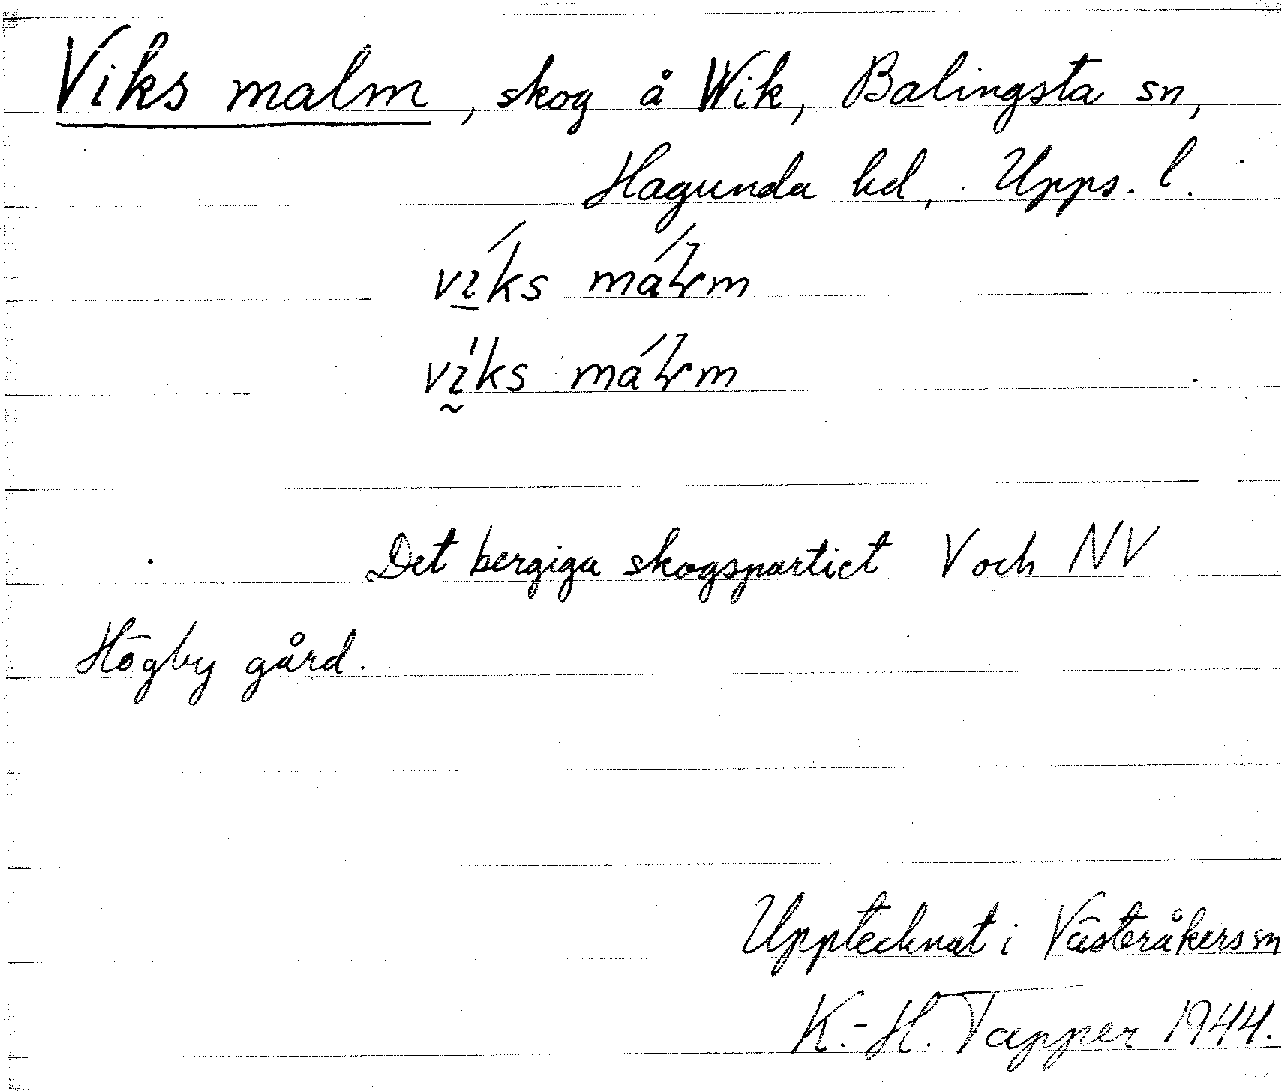 Viks malm, skog å Wik, Balingsta sn,
Hagunda hd, Upps. l.
Det bergiga skogspartiet V och NV
Högby gård.
Upptecknat i Västeråkers sn
K.-H. Tapper 1944.